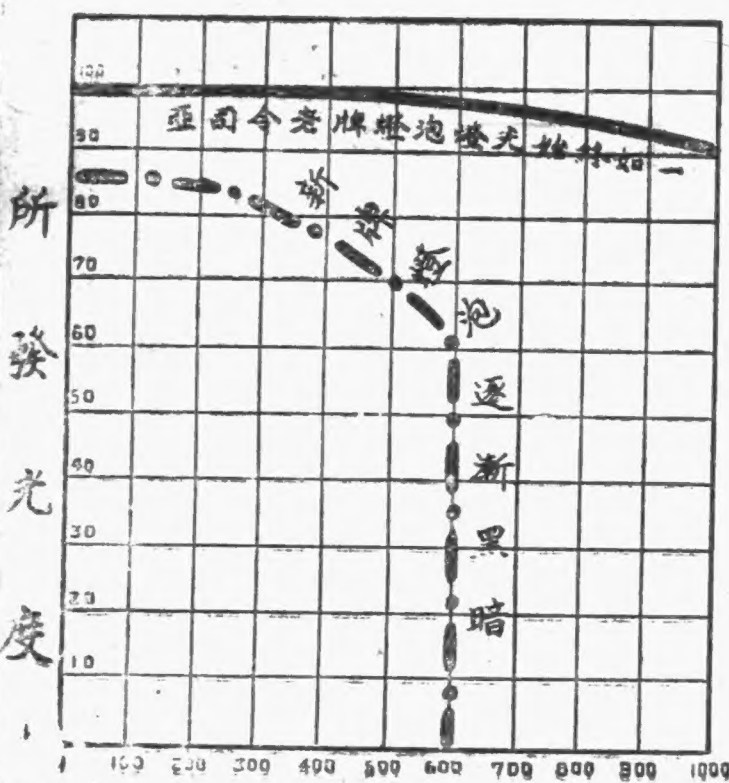 100
90
80
70
60
50
40
30
20
10
亞司令老牌燈泡燈光始終如一
新牌
泡
逐漸黑暗
所發光度
1 100 200 300 400 500 600 700 800 900 1000